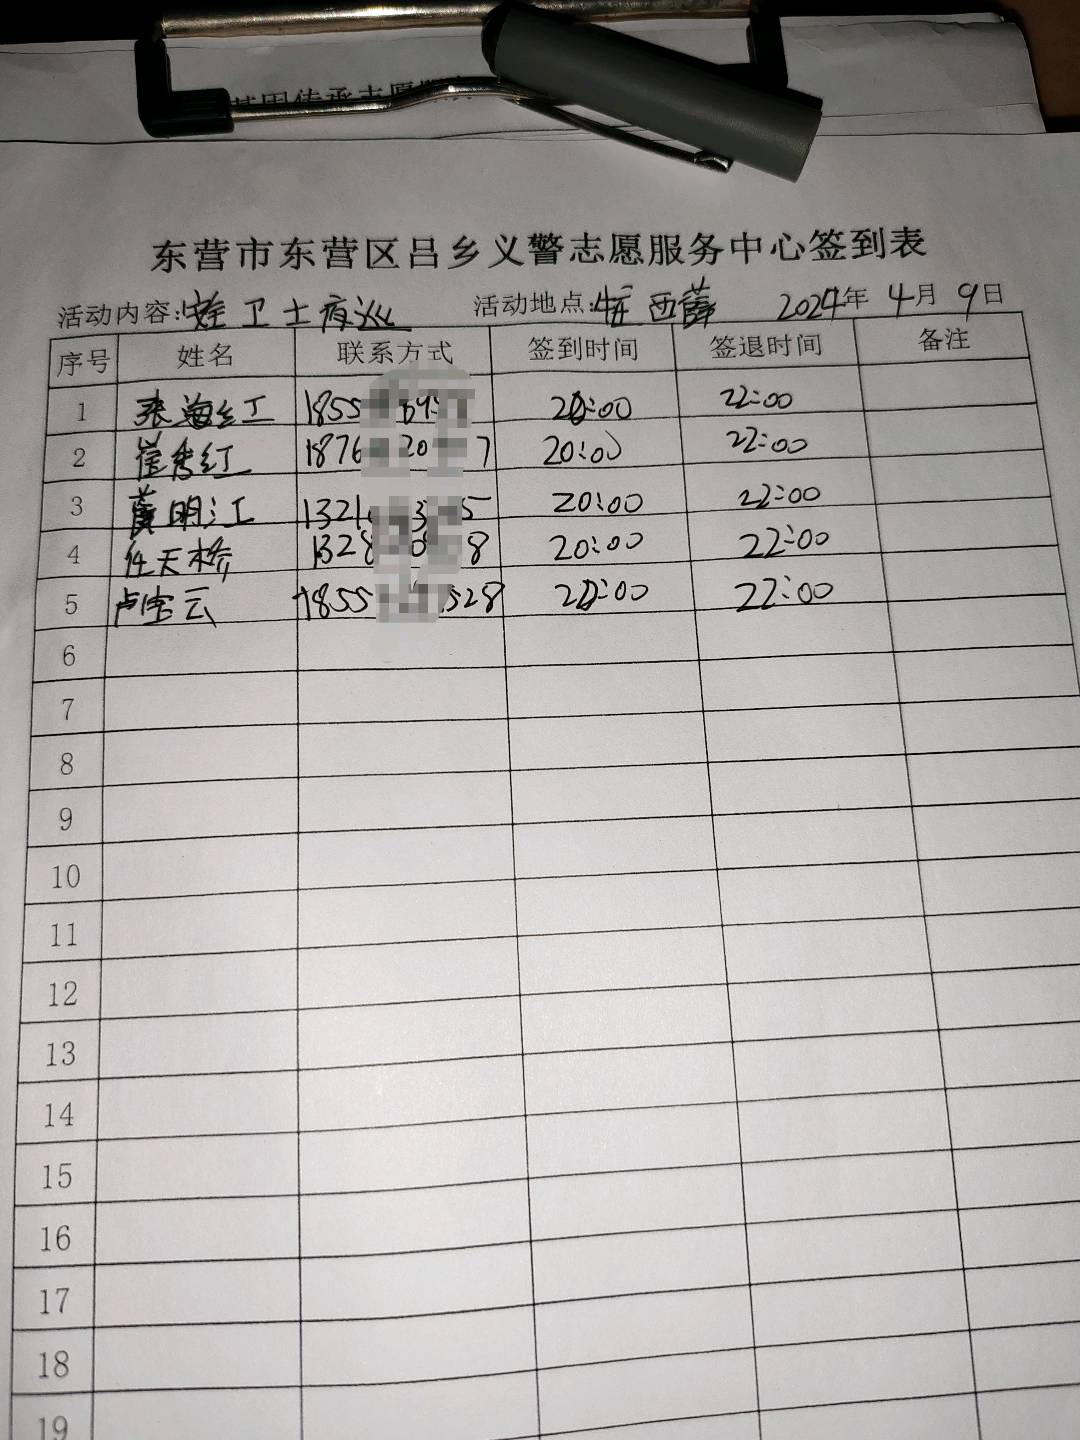 基因传承志愿服
东营市东营区吕乡义警志愿服务中心签到表
活动内容: 卫士夜巡 活动地点: 西薛 2024年4月9日
序号 姓名 联系方式 签到时间 签退时间 备注
1 张海红 1855 20:00 22:00
2 崔秀红 1876 20 7 20:00 22:00
3 黄明江 1321 3 5 20:00 22:00
4 任天桥 1328 8 20:00 22:00
5 卢宝云 1855 528 20:00 22:00
6
7
8
9
10
11
12
13
14
15
16
17
18
19